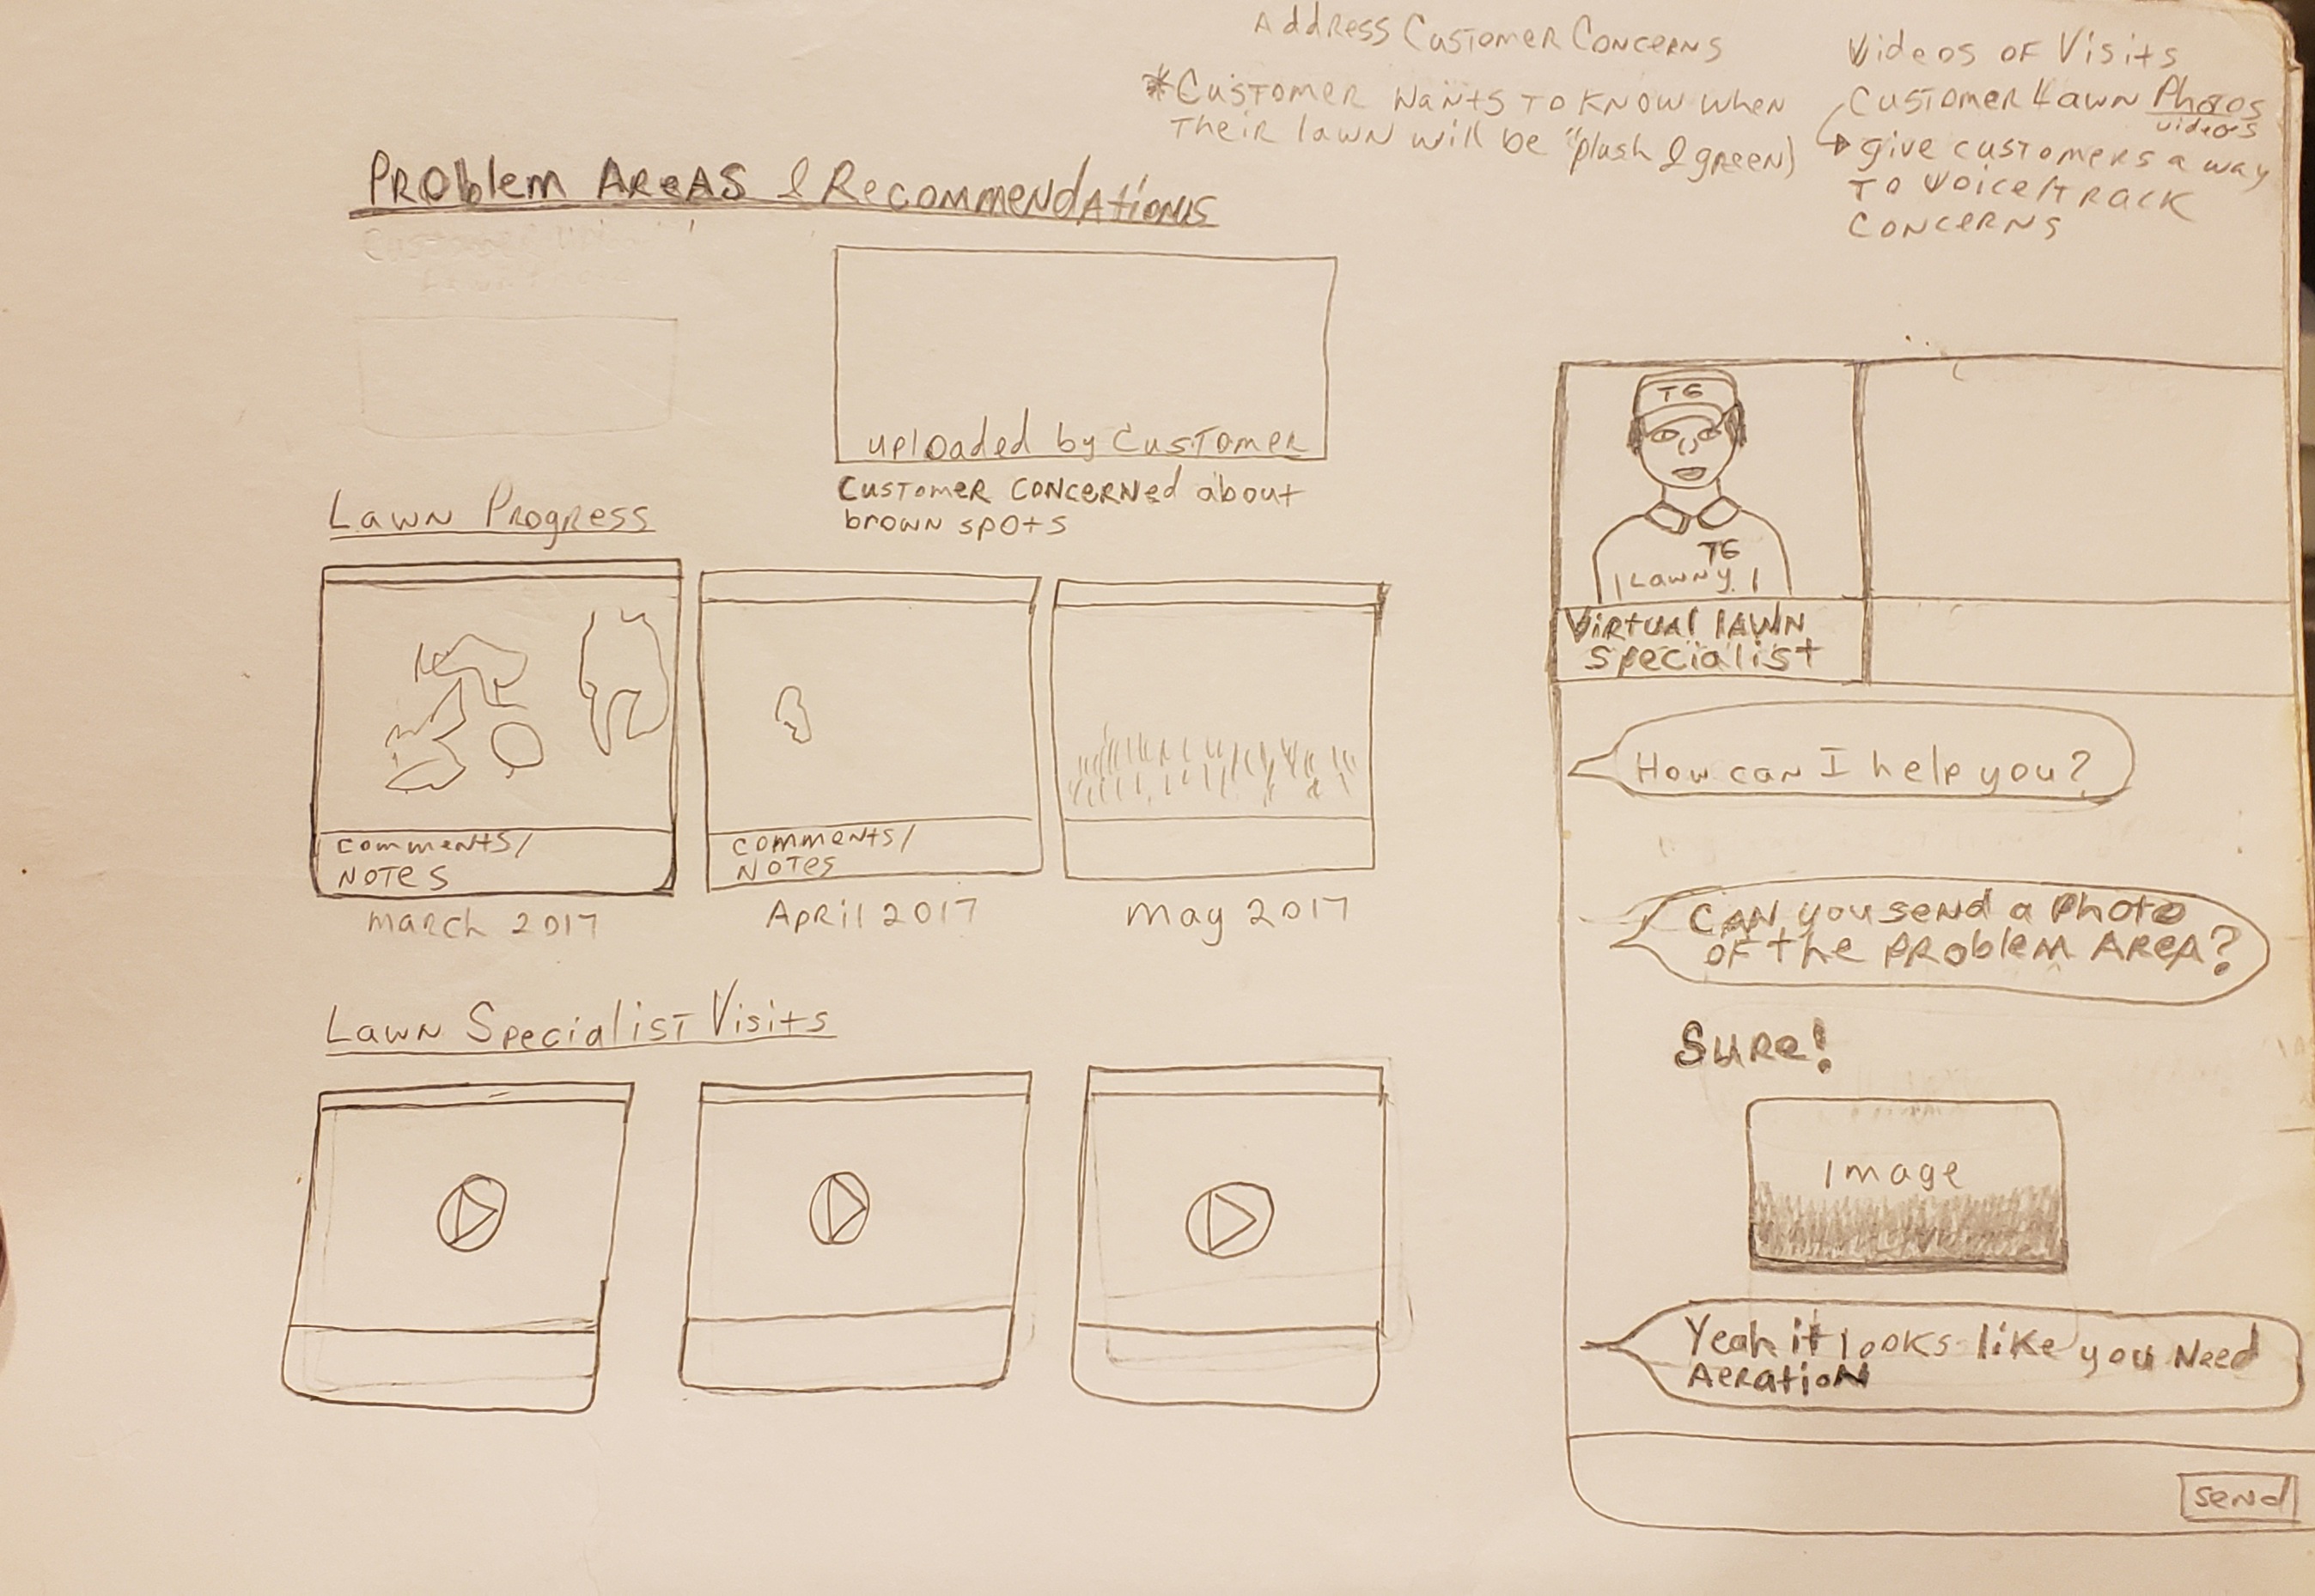 Address Customer Concerns
*Customer wants to know when
their lawn will be "plush & green)
Videos of Visits
Customer Lawn Photos
videos
give customers a way
to voice/track
concerns
Problem Areas & Recommendations
Customer
uploaded by Customer
Customer concerned about
brown spots
Lawn Progress
comments/
notes
March 2017
comments/
notes
April 2017
May 2017
Lawn Specialist Visits
TG
TG
Lawny
Virtual Lawn
Specialist
How can I help you?
Can you send a photo
of the problem area?
Sure!
Image
Yeah it looks like you need
Aeration
send